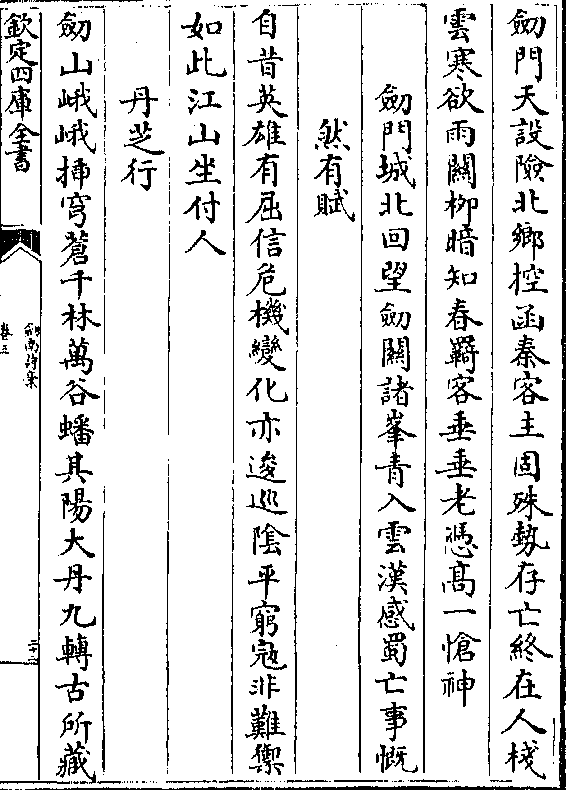 劒門天設險北鄉控函秦客主固殊勢存亡終在人棧
雲寒欲雨關柳暗知春羇客垂垂老憑髙一愴神
劒門城北回望劒關諸峯青入雲漢感蜀亡事慨
然有賦
自昔英雄有屈信危機變化亦逡巡陰平窮寇非難禦
如此江山坐付人
丹芝行
劒山峨峨揷穹蒼千林萬谷蟠其陽大丹九轉古所藏
欽定四庫全書
劍南詩槀
卷三